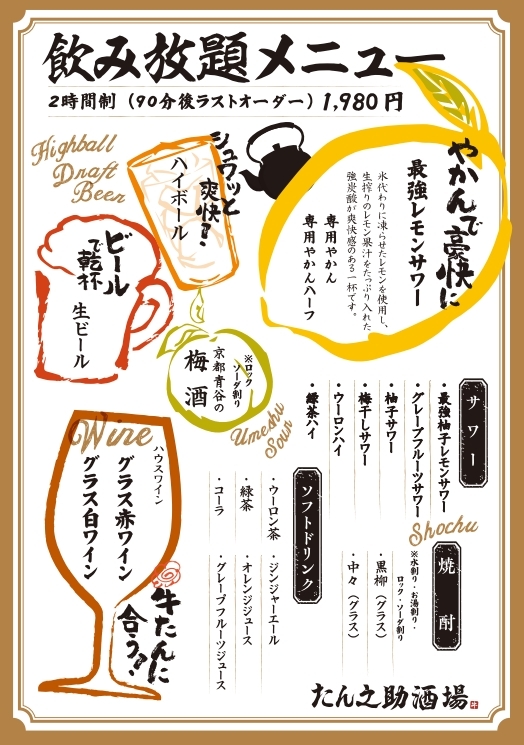 飲み放題メニュー
2時間制（90分後ラストオーダー）1,980円
Highball
Draft
Beer
シュワッと
爽快！
ハイボール
やかんで豪快に
最強レモンサワー
氷代わりに凍らせたレモンを使用し、
生搾りのレモン果汁をたっぷり入れた
強炭酸が爽快感のある一杯です。
専用やかん
専用やかんハーフ
ビール
で乾杯
生ビール
※ロック
ソーダ割り
京都青谷の
梅酒
Umeshu
Soun
サワー
・最強柚子レモンサワー
・グレープフルーツサワー
・柚子サワー
・梅干しサワー
・ウーロンハイ
・緑茶ハイ
Wine
ハウスワイン
グラス赤ワイン
グラス白ワイン
牛たんに
合う！
ソフトドリンク
・ウーロン茶
・緑茶
・コーラ
・ジンジャーエール
・オレンジジュース
・グレープフルーツジュース
Shochu
焼酎
※水割り・お湯割り・
ロック・ソーダ割り
・黒柳（グラス）
・中々（グラス）
たん之助酒場